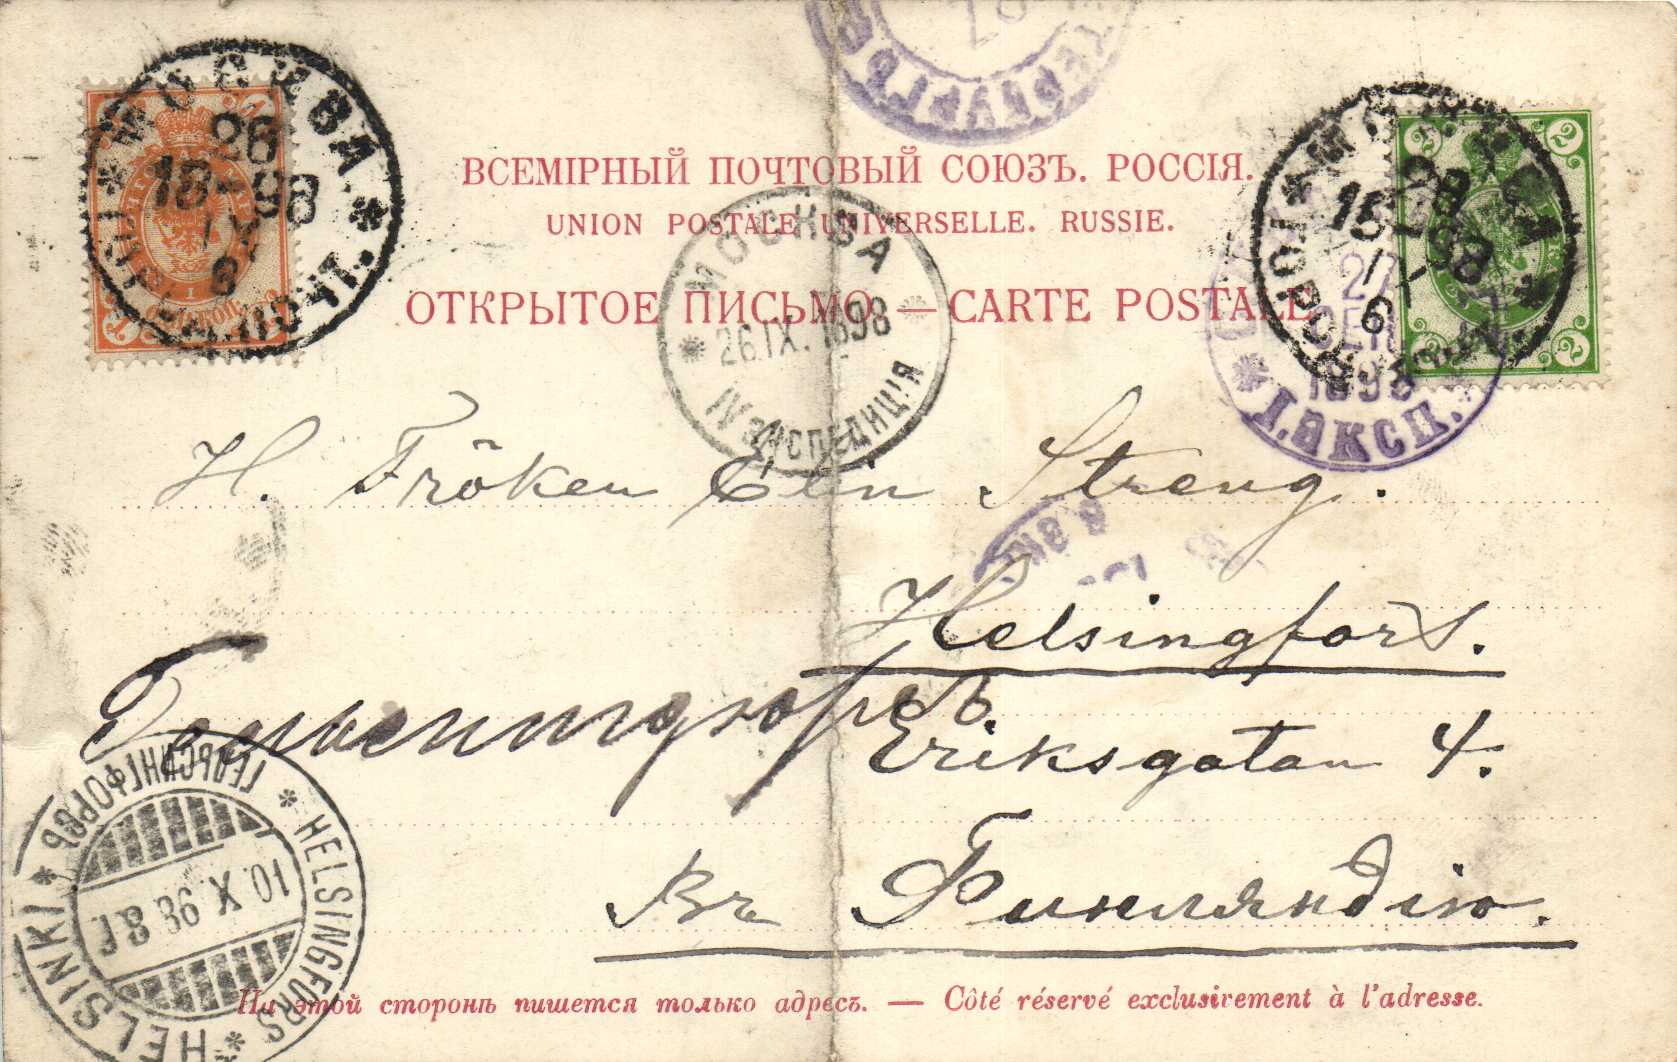 ВСЕМІРНЫЙ ПОЧТОВЫЙ СОЮЗЪ. РОССІЯ.
UNION POSTALE UNIVERSELLE. RUSSIE.
ОТКРЫТОЕ ПИСЬМО — CARTE POSTALE
МОСКВА
26
18-98
IX
6
ГОРОД. ПОЧТ.
МОСКВА
26
18-98
IX
6
МОСКВА
26.IX.1898
IV экспедиція
27
СЕН
1898
I. ЭКСП.
H. Fröken Elin Streng.
Helsingfors.
Гельсингфорсъ.
Eriksgatan 4.
Въ Финляндію.
ГЕЛЬСИНГФОРСЪ * HELSINGFORS * HELSINKI *
10. X 98 8 F
На этой сторонѣ пишется только адресъ. — Côté réservé exclusivement à l'adresse.